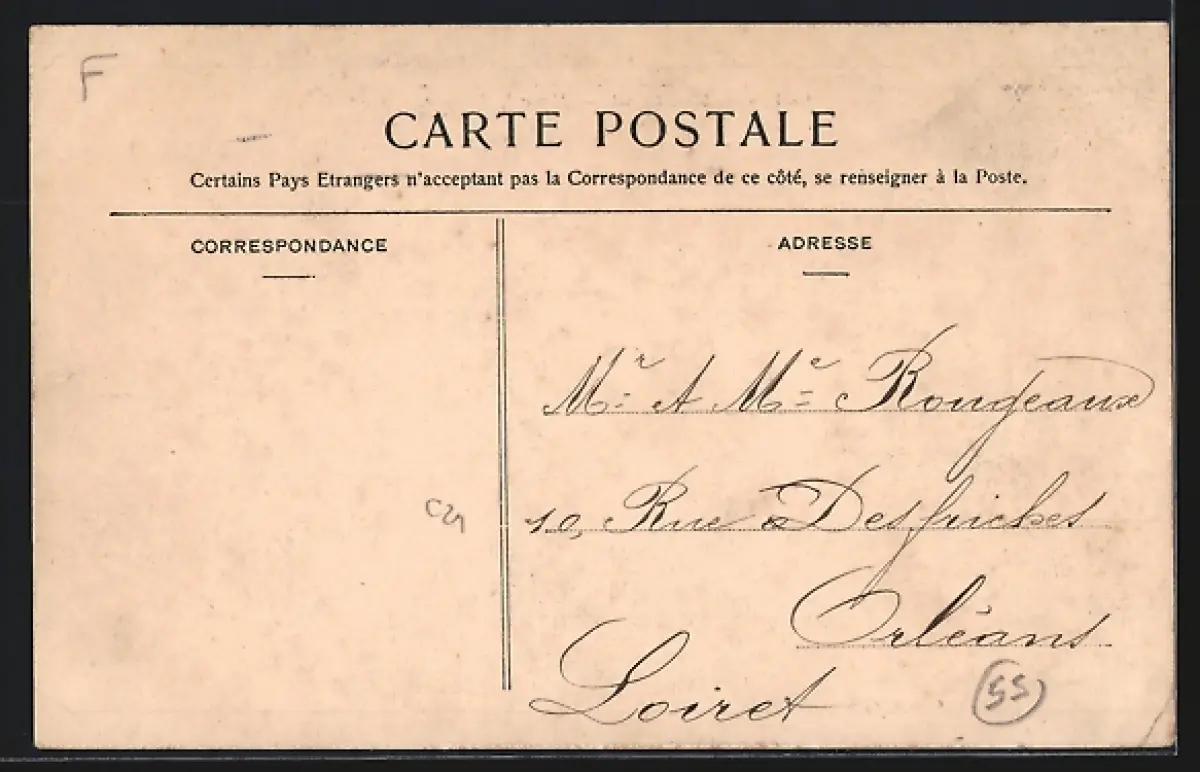 F
CARTE POSTALE
Certains Pays Etrangers n'acceptant pas la Correspondance de ce côté, se renseigner à la Poste.
CORRESPONDANCE
ADRESSE
Mr et Me Rougeaux
10, Rue Desfriches
Orléans
Loiret
55